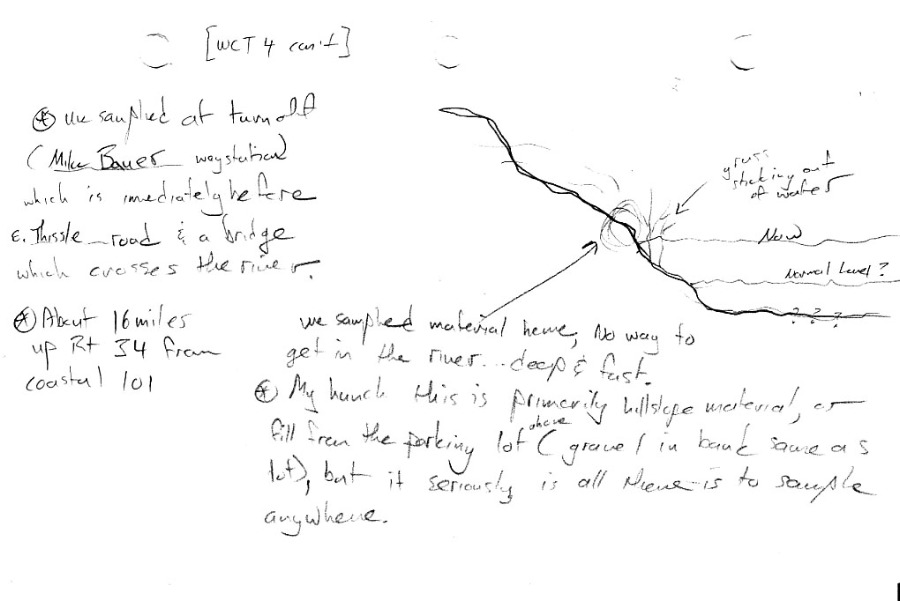 [WCT 4 con't]
* we sampled at turnoff
(Mike Bauer waystation)
which is imediately before
E. Thissle road & a bridge
which crosses the river.
* About 16 miles
up Rt 34 from
coastal 101
grass
sticking out
of water
Now
Normal Level?
? ? ?
we sampled material here, No way to
get in the river...deep & fast.
* My hunch this is primarily hillslope material, or
fill from the parking lot above (gravel in bank same as
lot), but it seriously is all there is to sample
anywhere.